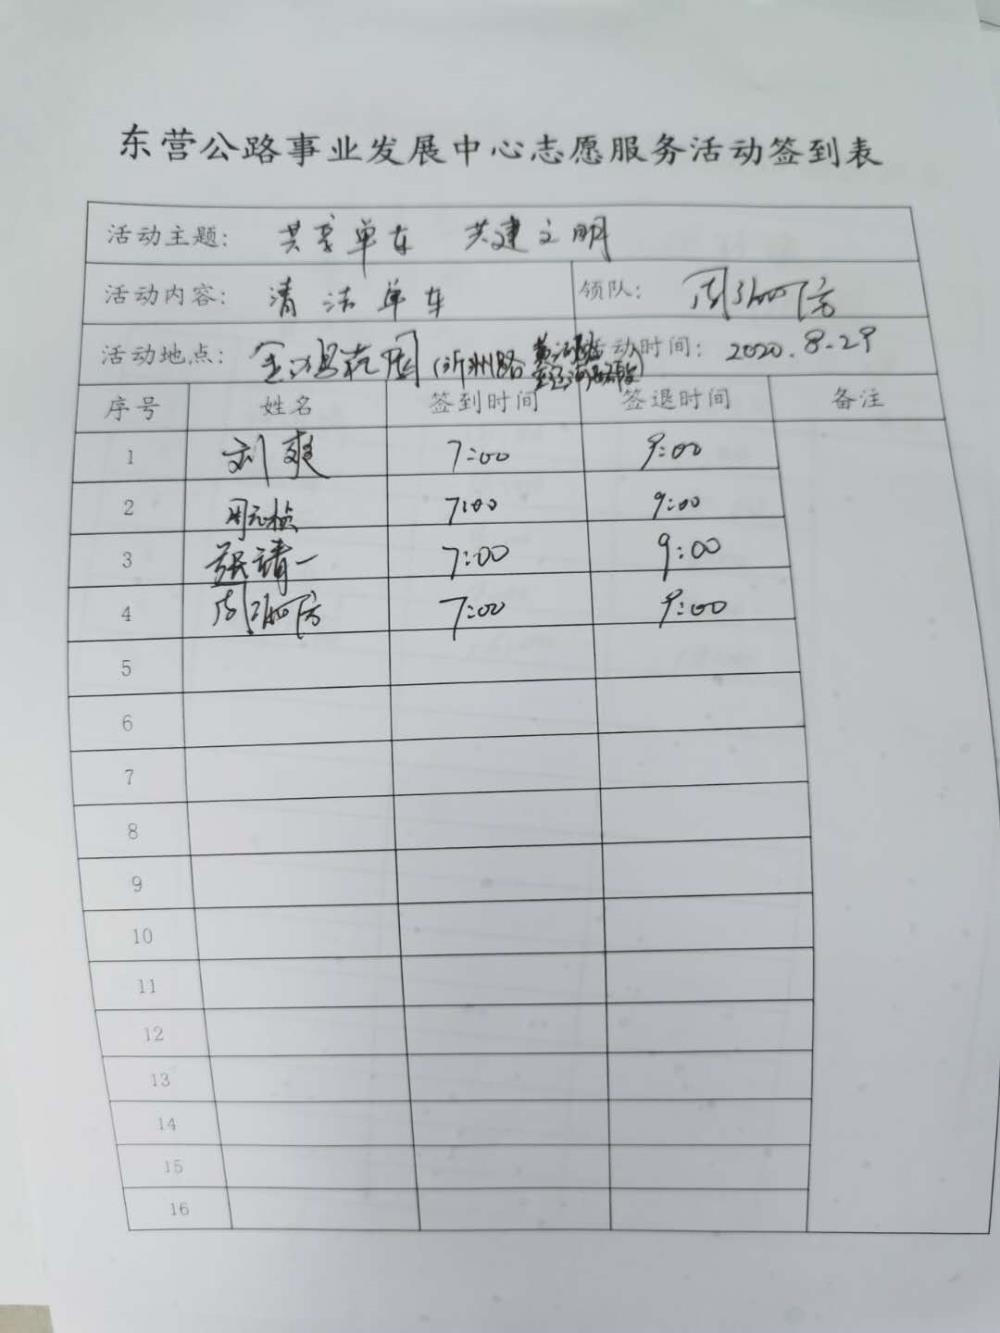 东营公路事业发展中心志愿服务活动签到表
活动主题: 共享单车 共建文明
活动内容: 清洁单车 领队: 周
活动地点: 金 花园 (沂州路 黄河路 活动时间: 2020.8.29
序号 姓名 签到时间 签退时间 备注
1 刘爽 7:00 9:00
2 周元桢 7:00 9:00
3 张靖一 7:00 9:00
4 周 7:00 9:00
5
6
7
8
9
10
11
12
13
14
15
16